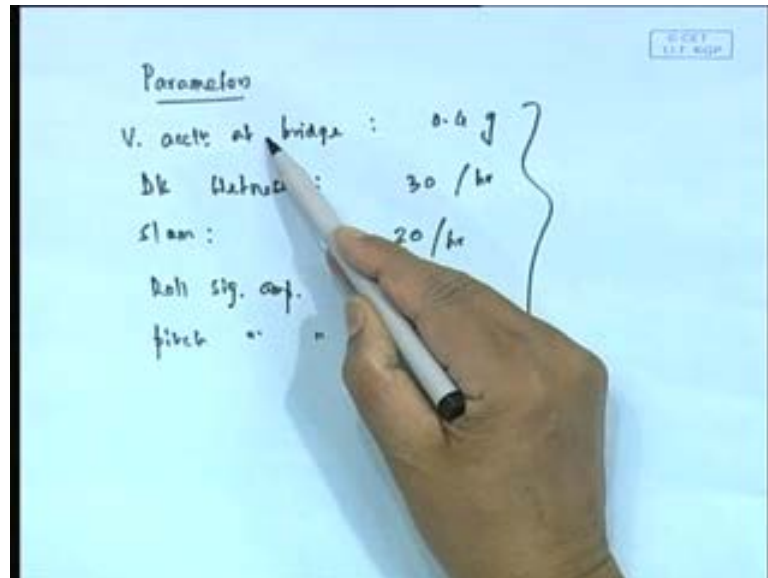 © CET
I.I.T. KGP
Parameters
V. accln at bridge : 0.4 g
Dk Wetness : 30 / hr
Slam : 20 / hr
Roll sig. amp.
pitch " "